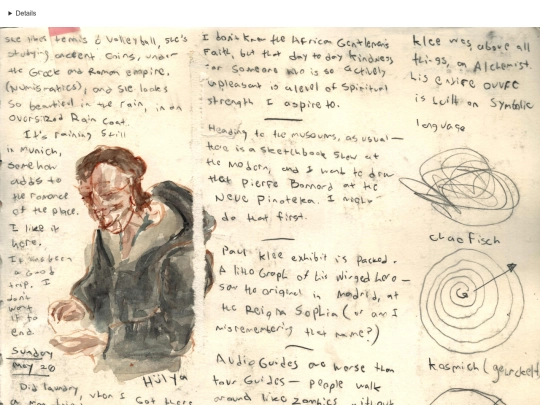 Details
she likes tennis & volleyball, she's
studying ancient coins, under
the Greek and Roman empire,
(numismatics), and she looks
so beautiful in the rain, in an
oversized Rain Coat.
It's raining still
in Munich,
somehow
adds to
the romance
of the place.
I like it
here,
It has been
a good
trip. I
dont
want
it to
end
Sunday
May 26
Did laundry, when I
Got there
Hülya
I don't know the African Gentleman's
Faith, but that day to day kindness
for someone who is so actively
unpleasant is a level of spiritual
strength I aspire to.
Heading to the museums, as usual —
there is a sketchbook show at
the modern, and I want to draw
that Pierre Bonnard at the
Neue Pinoteka. I might
do that first.
Paul Klee exhibit is packed.
A lithograph of his winged hero —
saw the original in Madrid, at
the Reigna Sophia (or am I
misremembering that name?)
Audio Guides are worse than
tour Guides — people walk
around like zombies, without
Klee was, above all
things, an Alchemist.
his entire ouvre
is built on symbolic
language
chaotisch
kosmisch